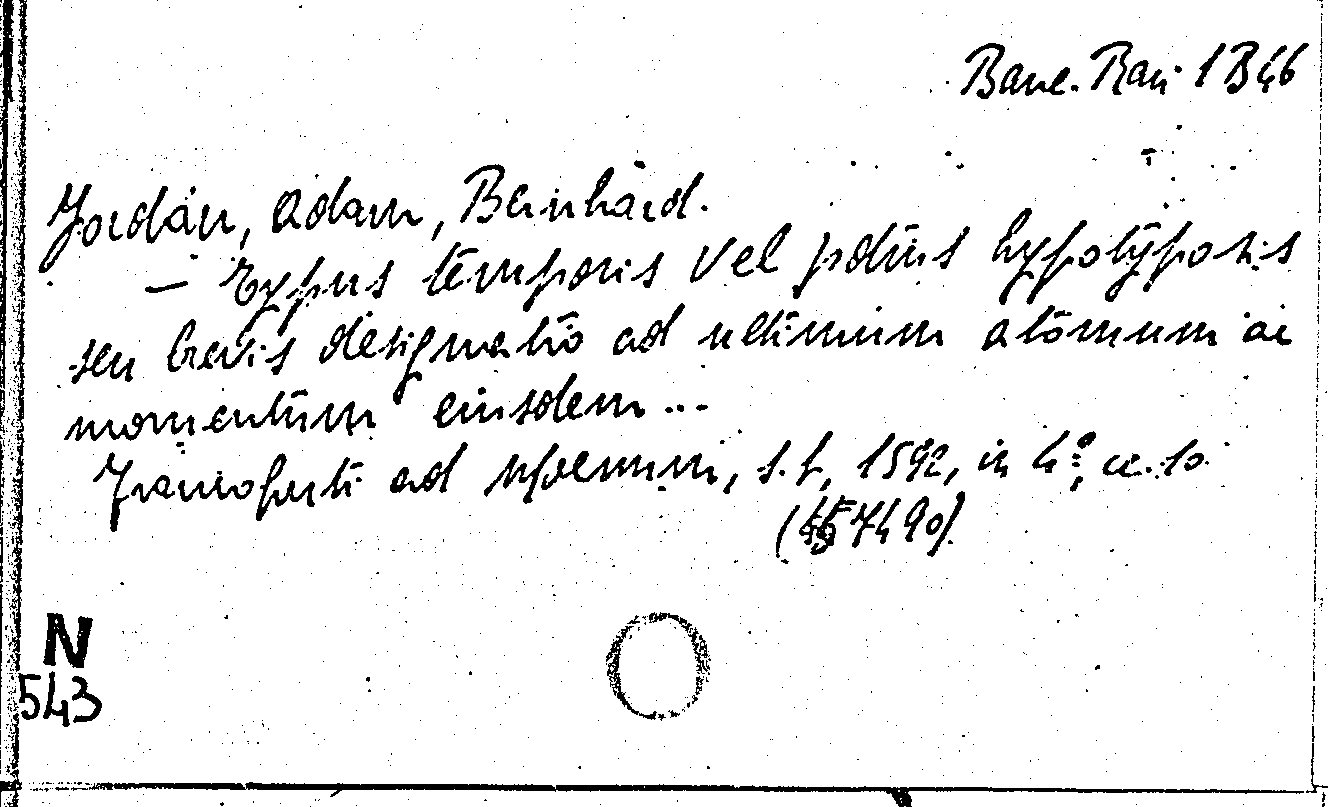 Banc. Rari 1 B 46
Jordan, Adam, Bernhard.
— Typus temporis vel potius hypotyposis
seu brevis designatio ad ultimum atomum ac
momentum eiusdem ...
Francofurti ad Moenum, s.t., 1592, in 4º, cc. 10.
7490).
N
543